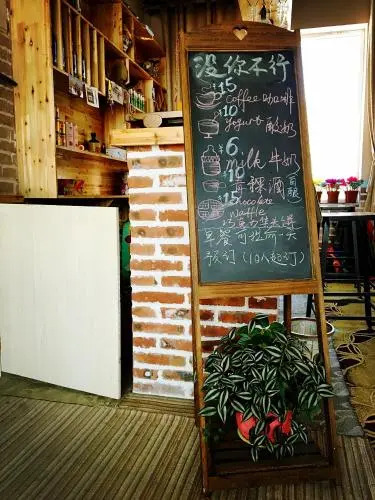 没你不行
¥15
coffee 咖啡
¥10
yogurt 酸奶
¥6
milk 牛奶
¥10
青稞酒 自酿
¥15
chocolate
waffle
巧克力华夫饼
早餐可提前一天
预订 (10人起订)